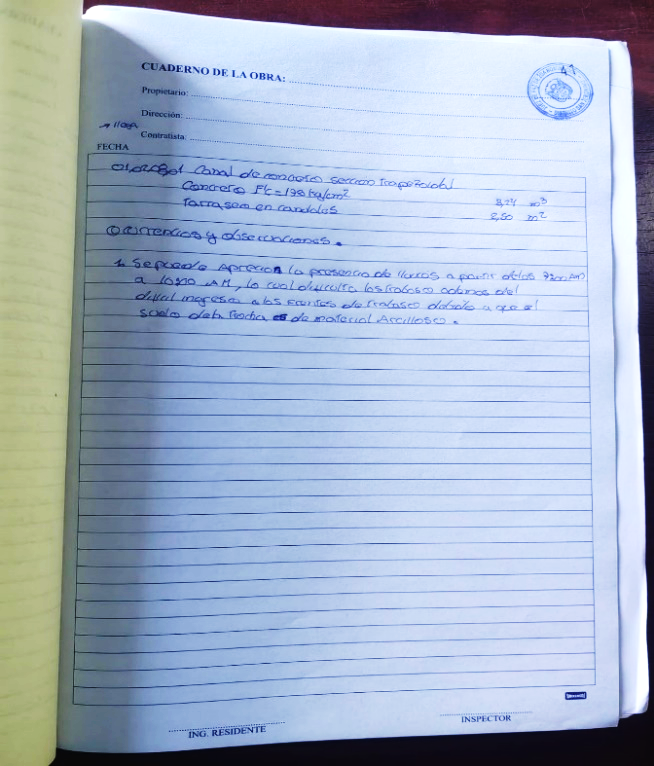 CUADERNO DE LA OBRA:
Propietario:
Dirección:
Contratista:
FECHA
Canal de concreto seccion trapezoidal
Concreto F'c = 175 kg/cm² 3,24 m³
Tarrajeo en candolas 2,50 m²
Ocurrencias y observaciones.
1. Se puede Apreciar la presencia de lluvias a partir de las 7:00 AM
a 10:00 AM, lo cual dificulta los trabajos ademas del
dificil ingreso a los frentes de trabajo debido a que el
suelo de la trocha es de material Arcilloso.
ING. RESIDENTE
INSPECTOR